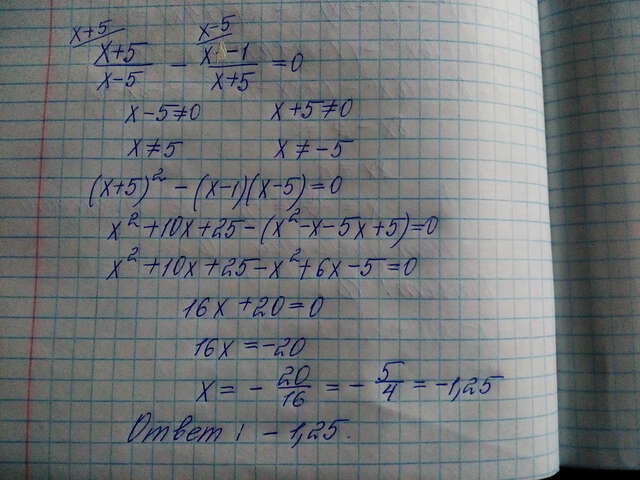 x+5 x-5
x+5/x-5 - x-1/x+5 = 0
x-5≠0 x+5≠0
x≠5 x≠-5
(x+5)² - (x-1)(x-5)=0
x²+10x+25-(x²-x-5x+5)=0
x²+10x+25-x²+6x-5=0
16x+20=0
16x=-20
x = - 20/16 = - 5/4 = -1,25
Ответ: -1,25.